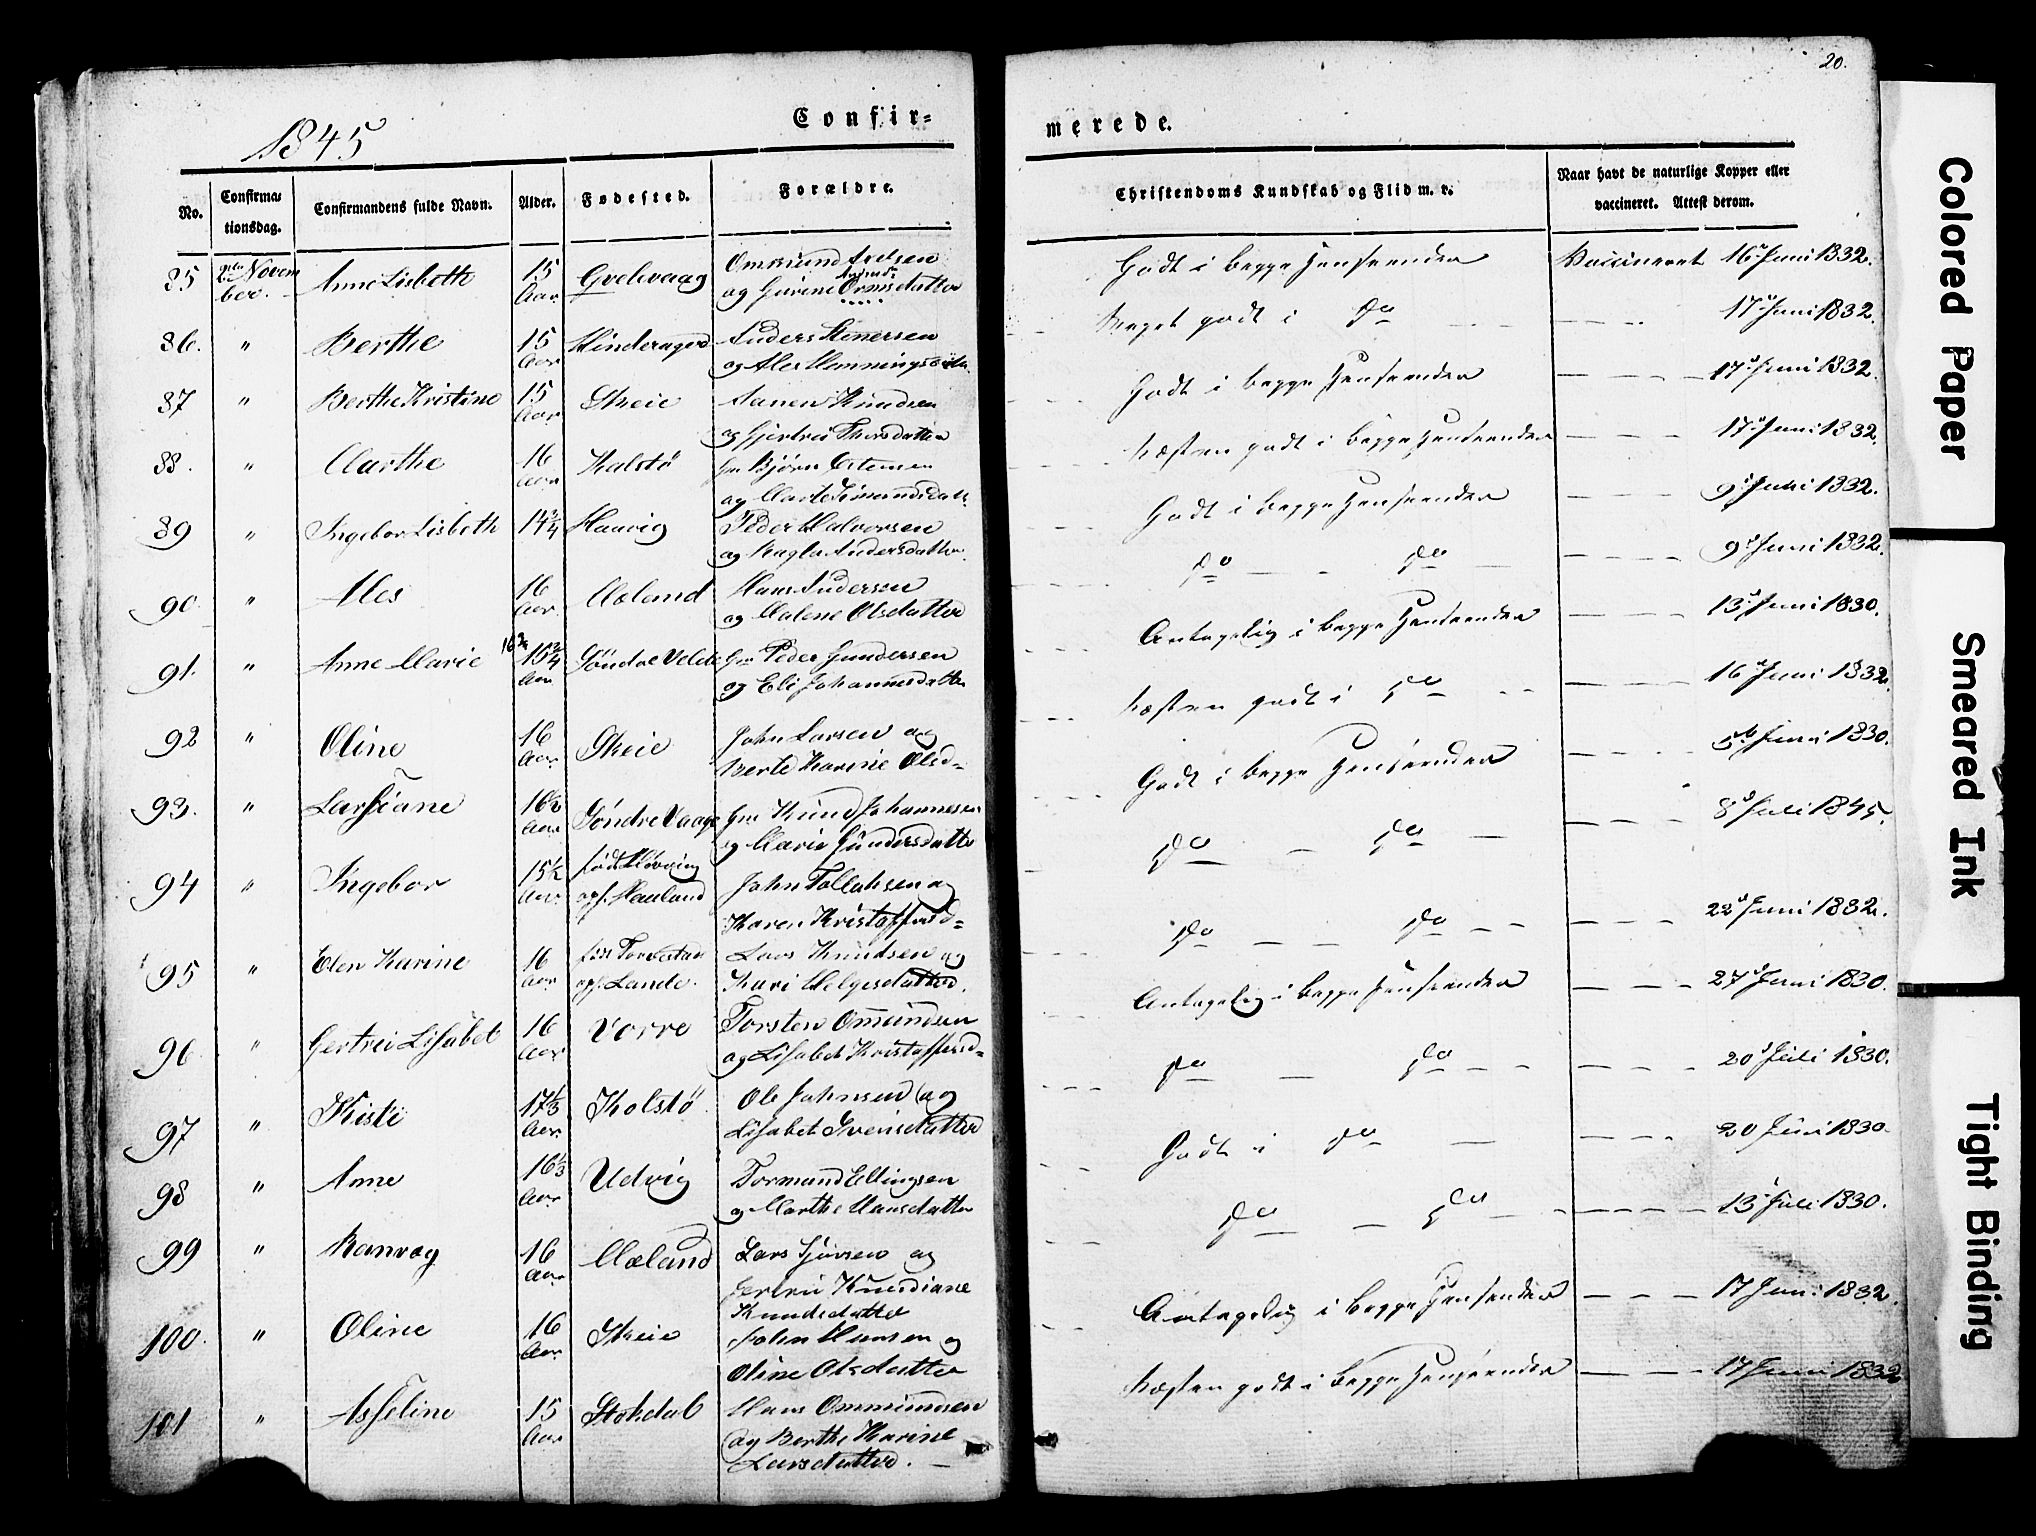 20.
1845
Confir=
merede.
No.
Confirma=
tionsdag.
Confirmandens fulde Navn.
Alder.
Fødested.
Forældre.
Christendoms Kundskab og Flid m. v.
Naar havt de naturlige Kopper eller
vaccineret. Attest derom.
85 2den Novem
ber. Anne Lisbeth 15 Aar Ommund
og Gurine
Godt i begge Henseender Vaccineret 16 Juni 1832.
86. " Berthe 15 Aar Hinderager Anders
og Ales Henningsdtr.
Meget godt i do 17 Juni 1832.
87 " Berthe Kristine 15 Aar Skeie Aanen Knudsen
og Gjertrei Thorsdatter
Godt i begge Henseender 17 Juni 1832.
88. " Marthe 16 Aar Kalstø Bjørn
og Marte Simunsdatr
Næsten godt i begge Henseender 17 Juni 1832.
89 " Ingebor Lisbeth 14 3/4 Haavig Peder Halvorsen
og Ragla Andersdatter.
Godt i begge Henseender 9 Juni 1832.
90 " Ales 16 Aar Mæland Hans Andersen
og Malene Olsdatter
do do 9 Juni 1832.
91. " Anne Marie 15 3/4 Aar Søndre Velde Peder Gundersen
og Eli Johannesdatter
Antagelig i begge Henseender 13 Juni 1830.
92 " Oline 16 Aar Skeie John Larsen og
Berte Karine Olsd=
Næsten godt i do 16 Juni 1832.
93. " Larsiane 16 1/2 Aar Søndre Vaage Knud Johannesen
og Marie Gundersdatter
Godt i begge Henseender Juni 1830.
94 " Ingebor 15 1/2 Aar født Høvring
opf. Hauland John Tollaksen og
Karen Kristoffersd=
do do 8 Juli 1845.
95 " Elen Karine 16 Aar Torvestad
opf. Lande. Lars Knudsen og
Kari Helgesdatter.
do do 22 Juni 1832.
96 " Gertrei Lisabet 16 Aar Vorre Torsten Omundsen
og Lisabet Kristoffersd=
Antagelig i begge Henseender 27 Juni 1830.
97 " Kisti 17 1/3 Aar Kolstø Ole Johnsen og
Lisabet Svensdatter
do do 20 Juli 1830.
98 " Anne 16 1/3 Aar. Udvig Tormund Ellingsen
og Marthe Hansdatter
Godt i do 20 Juni 1830.
99 " Ranvog 16 Aar Mæland Lars Sjursen og
Gertrei Knudiane
Knudsdatter
do do 13 Juli 1830.
100. " Oline 16 Aar Skeie John Hansen og
Oline Olsdatter
Antagelig i begge Henseender 17 Juni 1832.
101 " Asseline 15 Aar Stokdal Hans Ommundsen
og Berthe Karine
Larsdatter.
Næsten godt i begge Henseender 17 Juni 1832
Colored Paper
Smeared Ink
Tight Binding